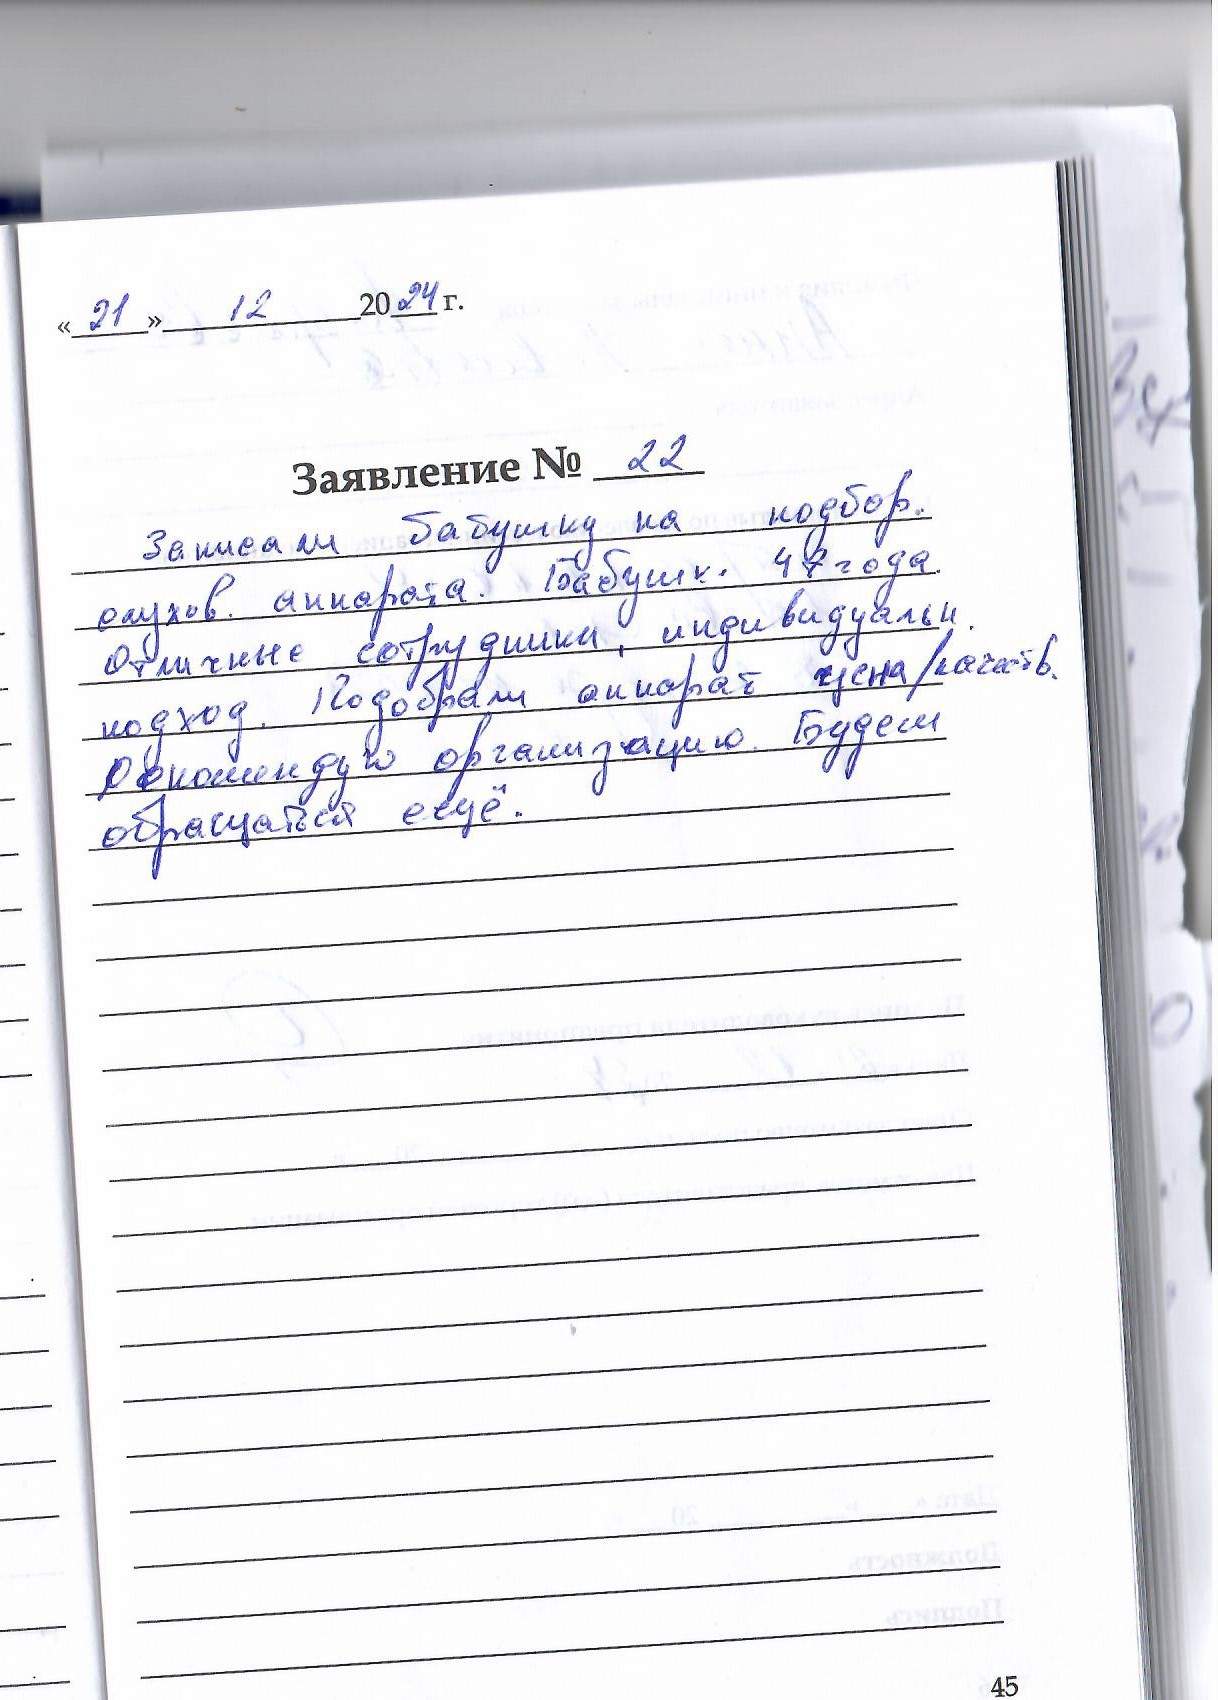 «21» 12 2024 г.
Заявление № 22
Записали бабушку на подбор.
слухов. аппарата. Бабушк. 47 года.
Отличные сотрудники, индивидуальн.
подход. Подобрали аппарат цена/качеств.
Рекомендую организацию. Будем
обращаться ещё.
45